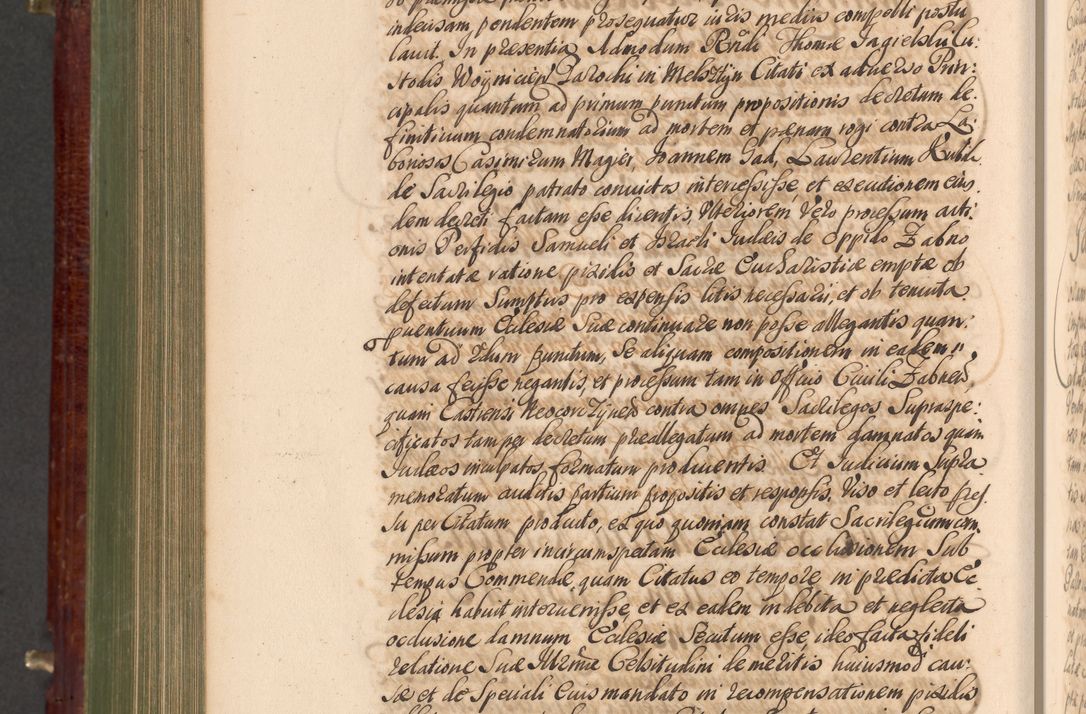 indecisam, pendentem prosequatior iuris mediis compelli postu
lavit. In presentia Admodum Rndi Thomæ Jagielski Cu:
stodis Woynicien Parochi in Melsztyn Citati ex adverso Prin:
cipalis quantum ad primum punctum propositionis decretum de
finitivum condemnatorium ad mortem et pænam rogi contra La:
boriosos Casimirum Magier, Joannem Gad, Laurentium Kubik
de Sacrilegio patrato convictos intercessisse, et executionem eius
dem decreti factam esse dicentis, Ulteriorem Vero processum acti
onis Perfidis Samueli et Israeli Judæis de oppido Zabno
intentatæ ratione pixidis et Sacræ Eucharistiæ emptæ ob
defectum Sumptus pro expensis litis necessarii, et ob tenuita
puentuum Ecclesiæ Suæ continuare non posse allegantis quan:
tum ad 2dum punctum, Se aliquam compositionem in eadem
causa fecisse negantis, et processum tam in officio Civili Zabnen,
quam Castrensi Neocorczynen contra omnes Sacrilegos Supraspe:
cificatos tam per decretum preallegatum ad mortem damnatos quam
Judæos inculpatos formatum producentis. Et Judicium Supra
memoratum auditis partium propositis et responsis, Viso et lecto
su per Citatum producto, ex quo quoniam constat Sacrilegium com
missum propter incircumspectam Ecclesiæ occlusionem Sub
tempus Commendæ quam Citatus eo tempore in prædicta Ec
clesia habuit intervenisse, et ex eadem indebita et neglecta
occlusione damnum Ecclesiæ Secutum esse, ideo facta fideli
relatione Suæ Illrmæ Celsitudini de meritis huiusmodi cau
sæ et de Speciali Eius mandato in recompensationem pixidis